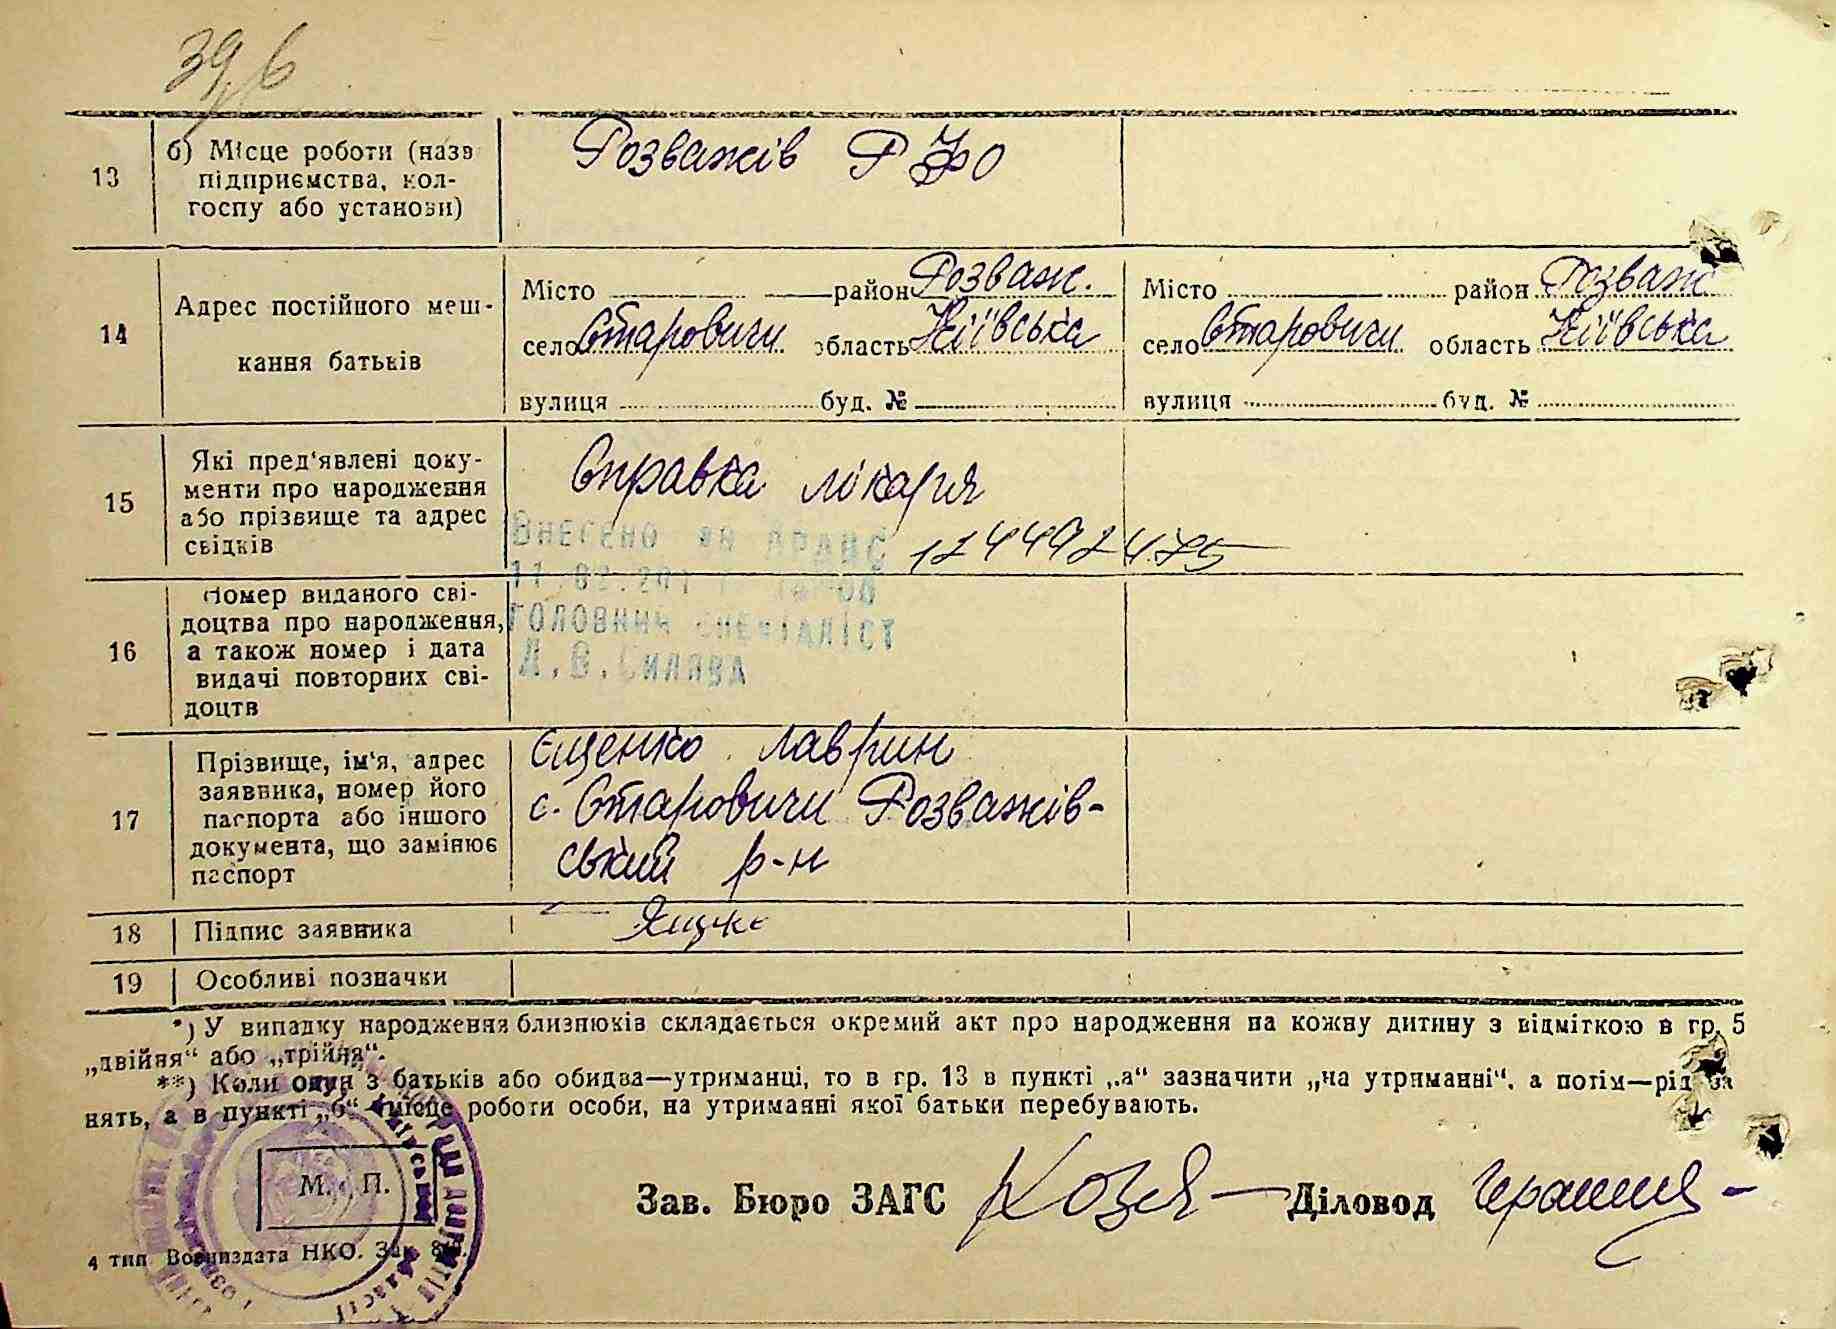 39б
13
б) Місце роботи (назв
підприємства, кол-
госпу або установи)
Розважів РФО
14
Адрес постійного меш-
кання батьків
Місто район Розваж.
село Старовичи область Київська
вулиця буд. №
Місто район Розваж
село Старовичи область Київська
вулиця буд. №
15
Які пред'явлені доку-
менти про народження
або прізвище та адрес
свідків
Справка лікаря
Внесено до ДРАЦС
12449247.25
16
Номер виданого сві-
доцтва про народження,
а також номер і дата
видачі повторних сві-
доцтв
головний спеціаліст
17
Прізвище, ім'я, адрес
заявника, номер його
паспорта або іншого
документа, що замінює
паспорт
Єщенко Лаврин
с. Старовичи Розважів-
ський р-н
18
Підпис заявника
19
Особливі позначки
*) У випадку народження близнюків складається окремий акт про народження на кожну дитину з відміткою в гр. 5
„двійня“ або „трійня“.
**) Коли один з батьків або обидва—утриманці, то в гр. 13 в пункті „а“ зазначити „на утриманні“, а потім—рід за
нять, а в пункті „б“ місце роботи особи, на утриманні якої батьки перебувають.
М. П.
Зав. Бюро ЗАГС Діловод
4 тип Воениздата НКО.